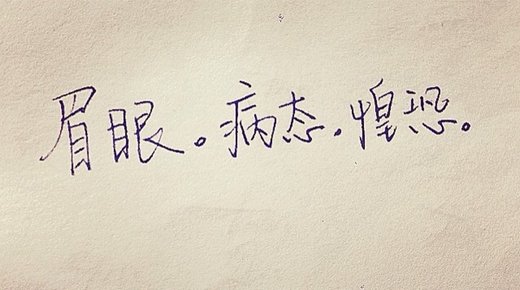 眉眼。病态。惶恐。